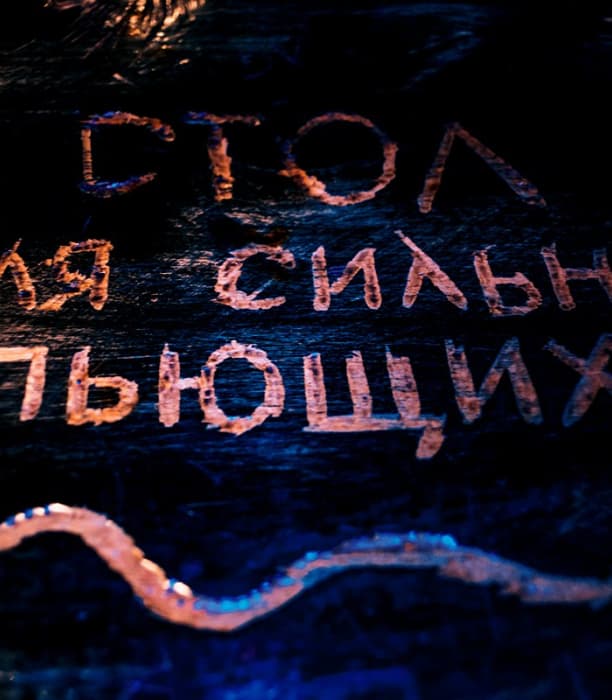 СТОЛ
ЛЯ СИЛЬН
ПЬЮЩИХ